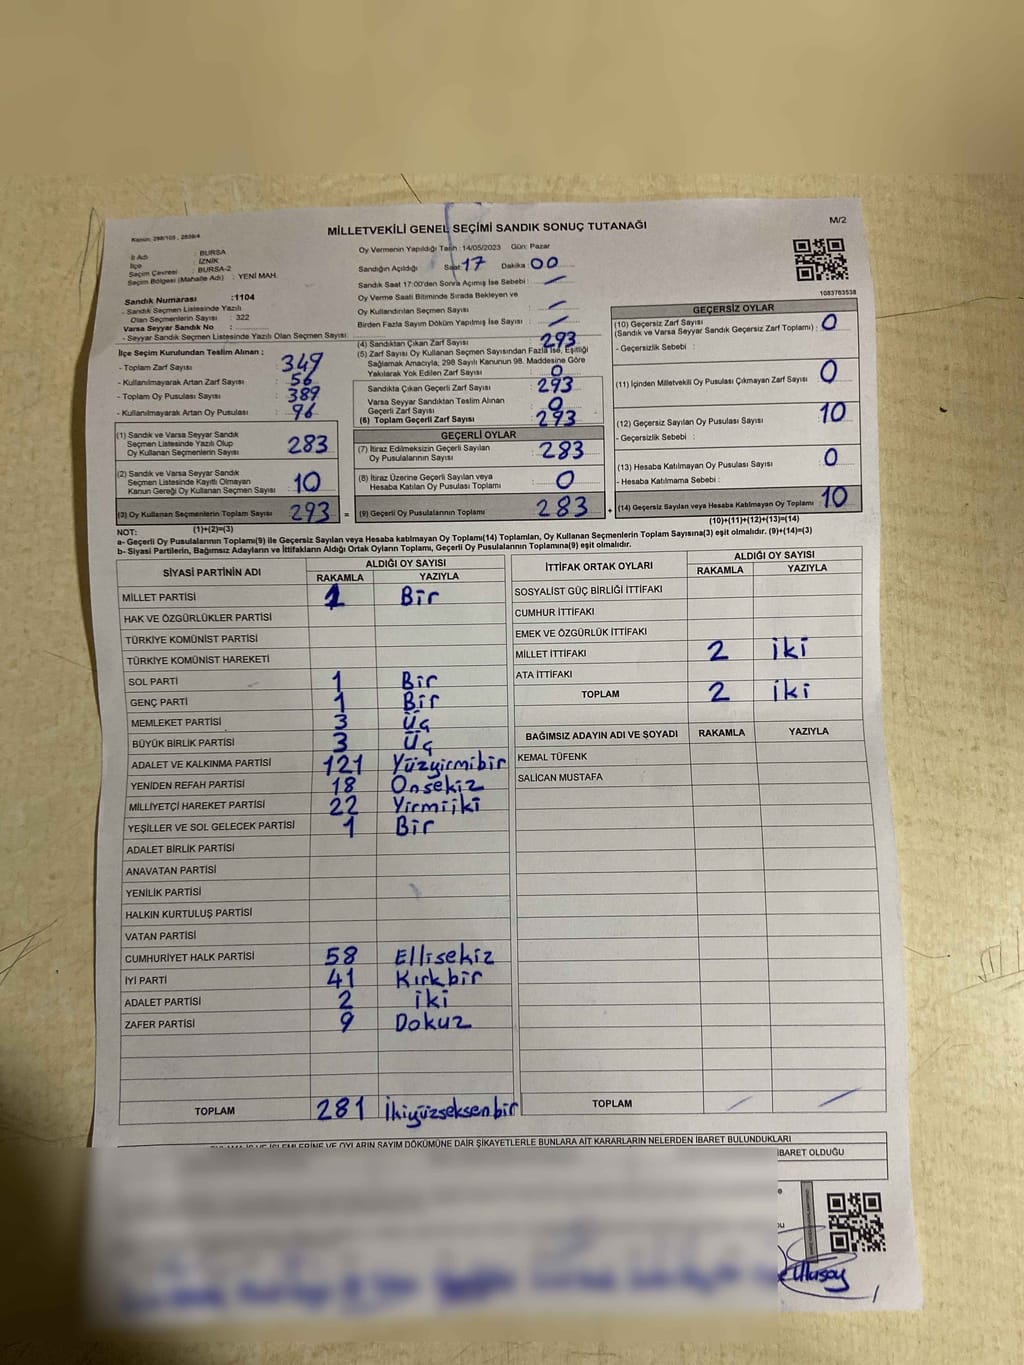 Kanun: 298/105 , 2839/4
MİLLETVEKİLİ GENEL SEÇİMİ SANDIK SONUÇ TUTANAĞI
M/2
İl Adı : BURSA
İlçe : İZNİK
Seçim Çevresi : BURSA-2
Seçim Bölgesi (Mahalle Adı) : YENİ MAH.
Sandık Numarası :1104
- Sandık Seçmen Listesinde Yazılı
Olan Seçmenlerin Sayısı : 322
Varsa Seyyar Sandık No :
- Seyyar Sandık Seçmen Listesinde Yazılı Olan Seçmen Sayısı:
İlçe Seçim Kurulundan Teslim Alınan ;
- Toplam Zarf Sayısı : 349
- Kullanılmayarak Artan Zarf Sayısı : 56
- Toplam Oy Pusulası Sayısı : 389
- Kullanılmayarak Artan Oy Pusulası : 96
(1) Sandık ve Varsa Seyyar Sandık
Seçmen Listesinde Yazılı Olup
Oy Kullanan Seçmenlerin Sayısı 283
(2) Sandık ve Varsa Seyyar Sandık
Seçmen Listesinde Kayıtlı Olmayan
Kanun Gereği Oy Kullanan Seçmen Sayısı 10
(3) Oy Kullanan Seçmenlerin Toplam Sayısı 293 =
(1)+(2)=(3)
Oy Vermenin Yapıldığı Tarih :14/05/2023 Gün: Pazar
Sandığın Açıldığı Saat:17 Dakika:00
Sandık Saat 17:00'den Sonra Açımış İse Sebebi :
Oy Verme Saati Bitiminde Sırada Bekleyen ve
Oy Kullandırılan Seçmen Sayısı
Birden Fazla Sayım Döküm Yapılmış İse Sayısı :
(4) Sandıktan Çıkan Zarf Sayısı : 293
(5) Zarf Sayısı Oy Kullanan Seçmen Sayısından Fazla İse, Eşitliği
Sağlamak Amacıyla, 298 Sayılı Kanunun 98. Maddesine Göre
Yakılarak Yok Edilen Zarf Sayısı : 0
Sandıkta Çıkan Geçerli Zarf Sayısı : 293
Varsa Seyyar Sandıktan Teslim Alınan
Geçerli Zarf Sayısı : 0
(6) Toplam Geçerli Zarf Sayısı : 293
GEÇERLİ OYLAR
(7) İtiraz Edilmeksizin Geçerli Sayılan
Oy Pusulalarının Sayısı 283
(8) İtiraz Üzerine Geçerli Sayılan veya
Hesaba Katılan Oy Pusulası Toplamı 0
(9) Geçerli Oy Pusulalarının Toplamı 283 +
1083763538
GEÇERSİZ OYLAR
(10) Geçersiz Zarf Sayısı
(Sandık ve Varsa Seyyar Sandık Geçersiz Zarf Toplamı) : 0
- Geçersizlik Sebebi :
(11) İçinden Milletvekili Oy Pusulası Çıkmayan Zarf Sayısı 0
(12) Geçersiz Sayılan Oy Pusulası Sayısı 10
- Geçersizlik Sebebi :
(13) Hesaba Katılmayan Oy Pusulası Sayısı 0
- Hesaba Katılmama Sebebi :
(14) Geçersiz Sayılan veya Hesaba Katılmayan Oy Toplamı 10
(10)+(11)+(12)+(13)=(14)
NOT:
a- Geçerli Oy Pusulalarının Toplamı(9) ile Geçersiz Sayılan veya Hesaba katılmayan Oy Toplamı(14) Toplamları, Oy Kullanan Seçmenlerin Toplam Sayısına(3) eşit olmalıdır. (9)+(14)=(3)
b- Siyasi Partilerin, Bağımsız Adayların ve İttifakların Aldığı Ortak Oyların Toplamı, Geçerli Oy Pusulalarının Toplamına(9) eşit olmalıdır.
SİYASİ PARTİNİN ADI ALDIĞI OY SAYISI
RAKAMLA YAZIYLA
MİLLET PARTİSİ 1 Bir
HAK VE ÖZGÜRLÜKLER PARTİSİ
TÜRKİYE KOMÜNİST PARTİSİ
TÜRKİYE KOMÜNİST HAREKETİ
SOL PARTİ 1 Bir
GENÇ PARTİ 1 Bir
MEMLEKET PARTİSİ 3 Üç
BÜYÜK BİRLİK PARTİSİ 3 Üç
ADALET VE KALKINMA PARTİSİ 121 Yüzyirmibir
YENİDEN REFAH PARTİSİ 18 Onsekiz
MİLLİYETÇİ HAREKET PARTİSİ 22 Yirmiiki
YEŞİLLER VE SOL GELECEK PARTİSİ 1 Bir
ADALET BİRLİK PARTİSİ
ANAVATAN PARTİSİ
YENİLİK PARTİSİ
HALKIN KURTULUŞ PARTİSİ
VATAN PARTİSİ
CUMHURİYET HALK PARTİSİ 58 Ellisekiz
İYİ PARTİ 41 Kırkbir
ADALET PARTİSİ 2 iki
ZAFER PARTİSİ 9 Dokuz
TOPLAM 281 İkiyüzseksenbir
İTTİFAK ORTAK OYLARI ALDIĞI OY SAYISI
RAKAMLA YAZIYLA
SOSYALİST GÜÇ BİRLİĞİ İTTİFAKI
CUMHUR İTTİFAKI
EMEK VE ÖZGÜRLÜK İTTİFAKI
MİLLET İTTİFAKI 2 iki
ATA İTTİFAKI
TOPLAM 2 iki
BAĞIMSIZ ADAYIN ADI VE SOYADI RAKAMLA YAZIYLA
KEMAL TÜFENK
SALİCAN MUSTAFA
TOPLAM
İŞ VE İŞLEMLERİNE VE OYLARIN SAYIM DÖKÜMÜNE DAİR ŞİKAYETLERLE BUNLARA AİT KARARLARIN NELERDEN İBARET BULUNDUKLARI
İBARET OLDUĞU
Ulusoy